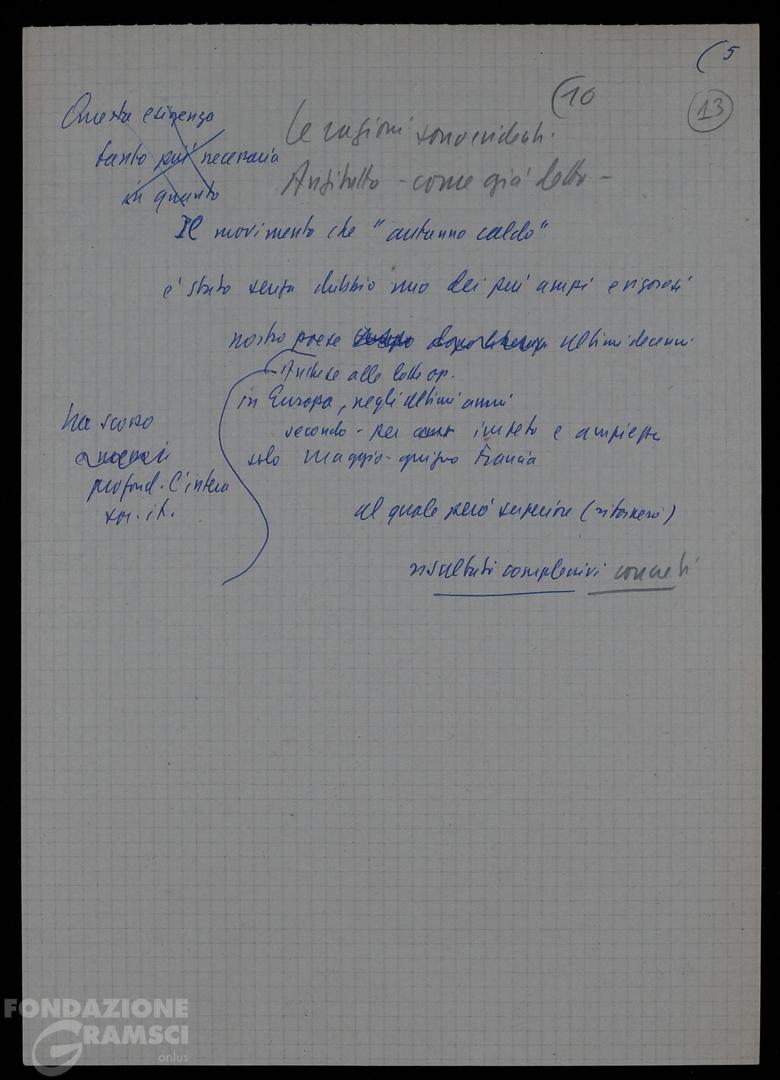 (5
(10
13
Questa esigenza
tanto più necessaria
in quanto
Le ragioni sono evidenti.
Anzitutto - come già detto -
Il movimento che "autunno caldo"
è stato senza dubbio uno dei più ampi e vigorosi
nostro paese dopo ultimi decenni.
Anche alle lotte op.
in Europa, negli ultimi anni
secondo - per impeto e ampiezza
solo Maggio-giugno Francia
ha scosso
profond. l'intera
soc. it.
al quale però superiore (ritornerò)
risultati complessivi concreti
FONDAZIONE
GRAMSCI
onlus